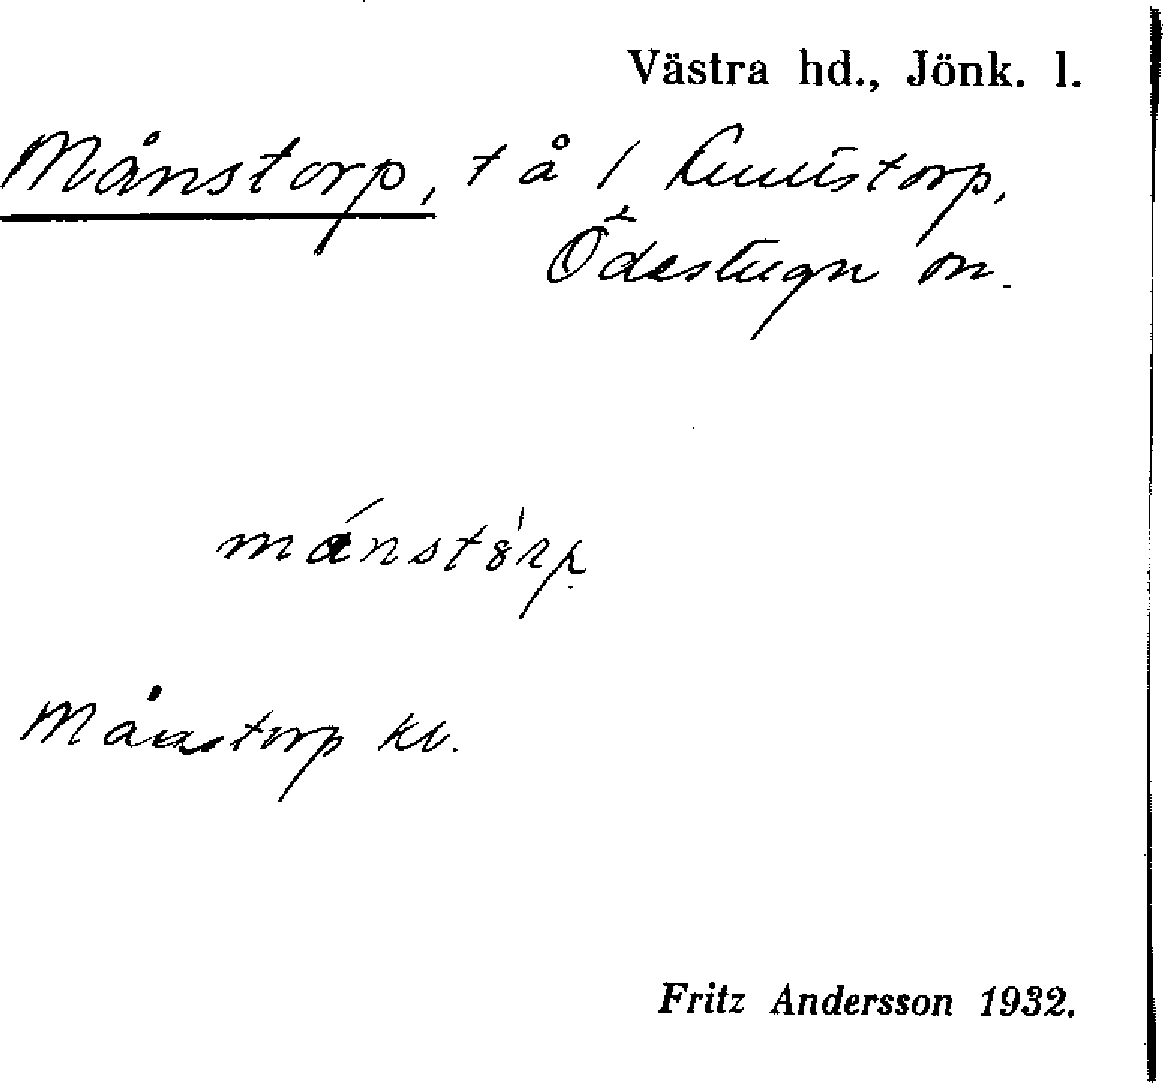 Västra hd., Jönk. l.
Månstorp, t å /
Ödestugu sn.
månstorp
Månstorp kv.
Fritz Andersson 1932.